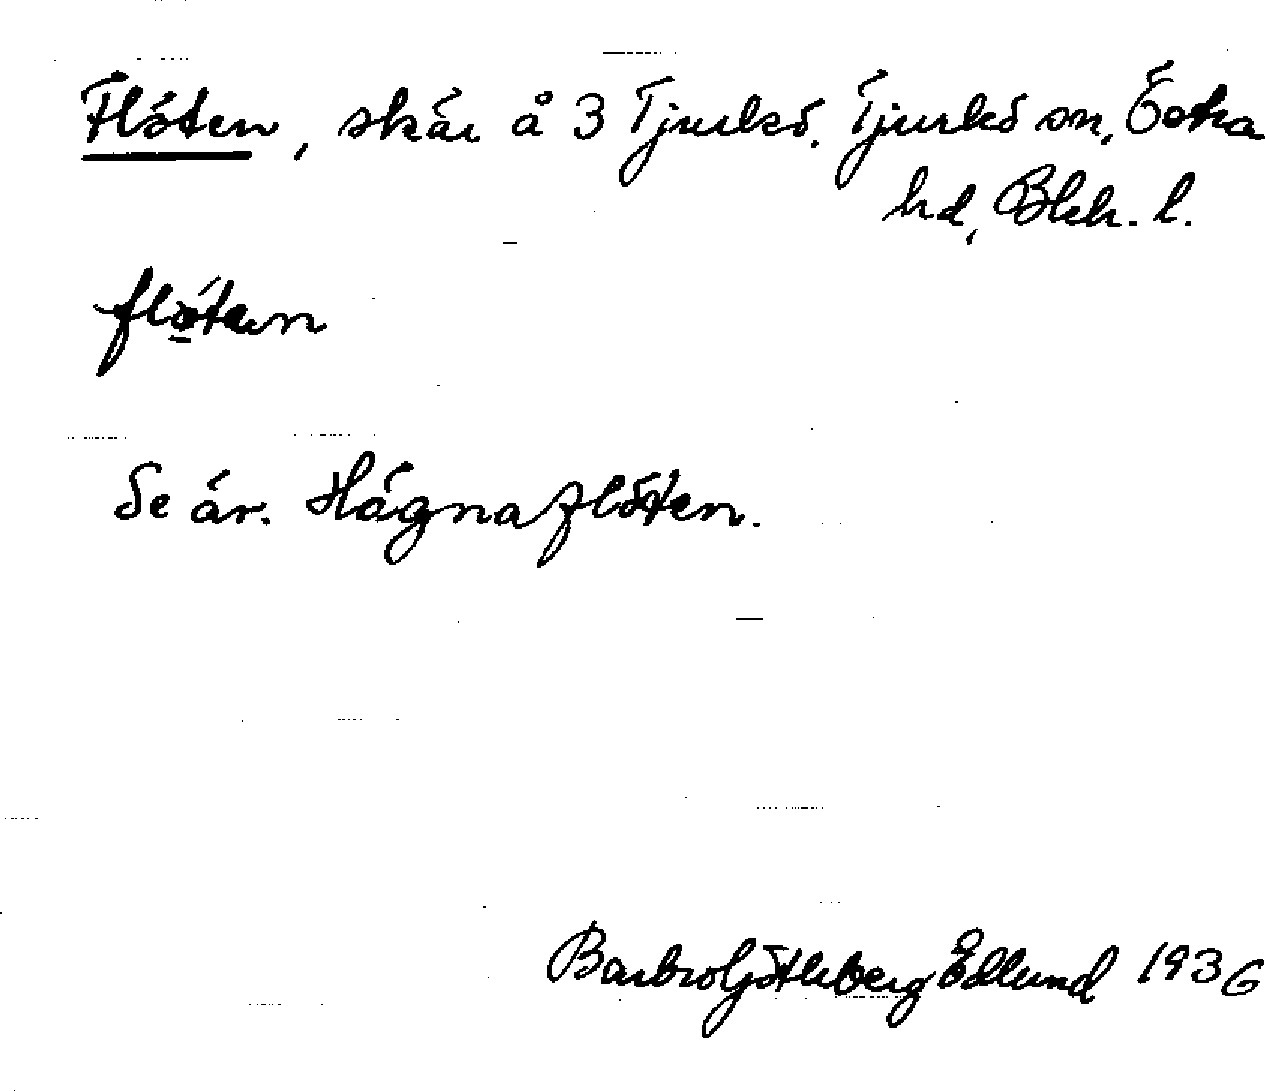 Flöten, skär å 3 Tjurkö. Tjurkö sn, Östra
hd, Blek. l.
flö̱́tən
Se är. Hägnaflöten.
Barbro Götleberg Edlund 1936